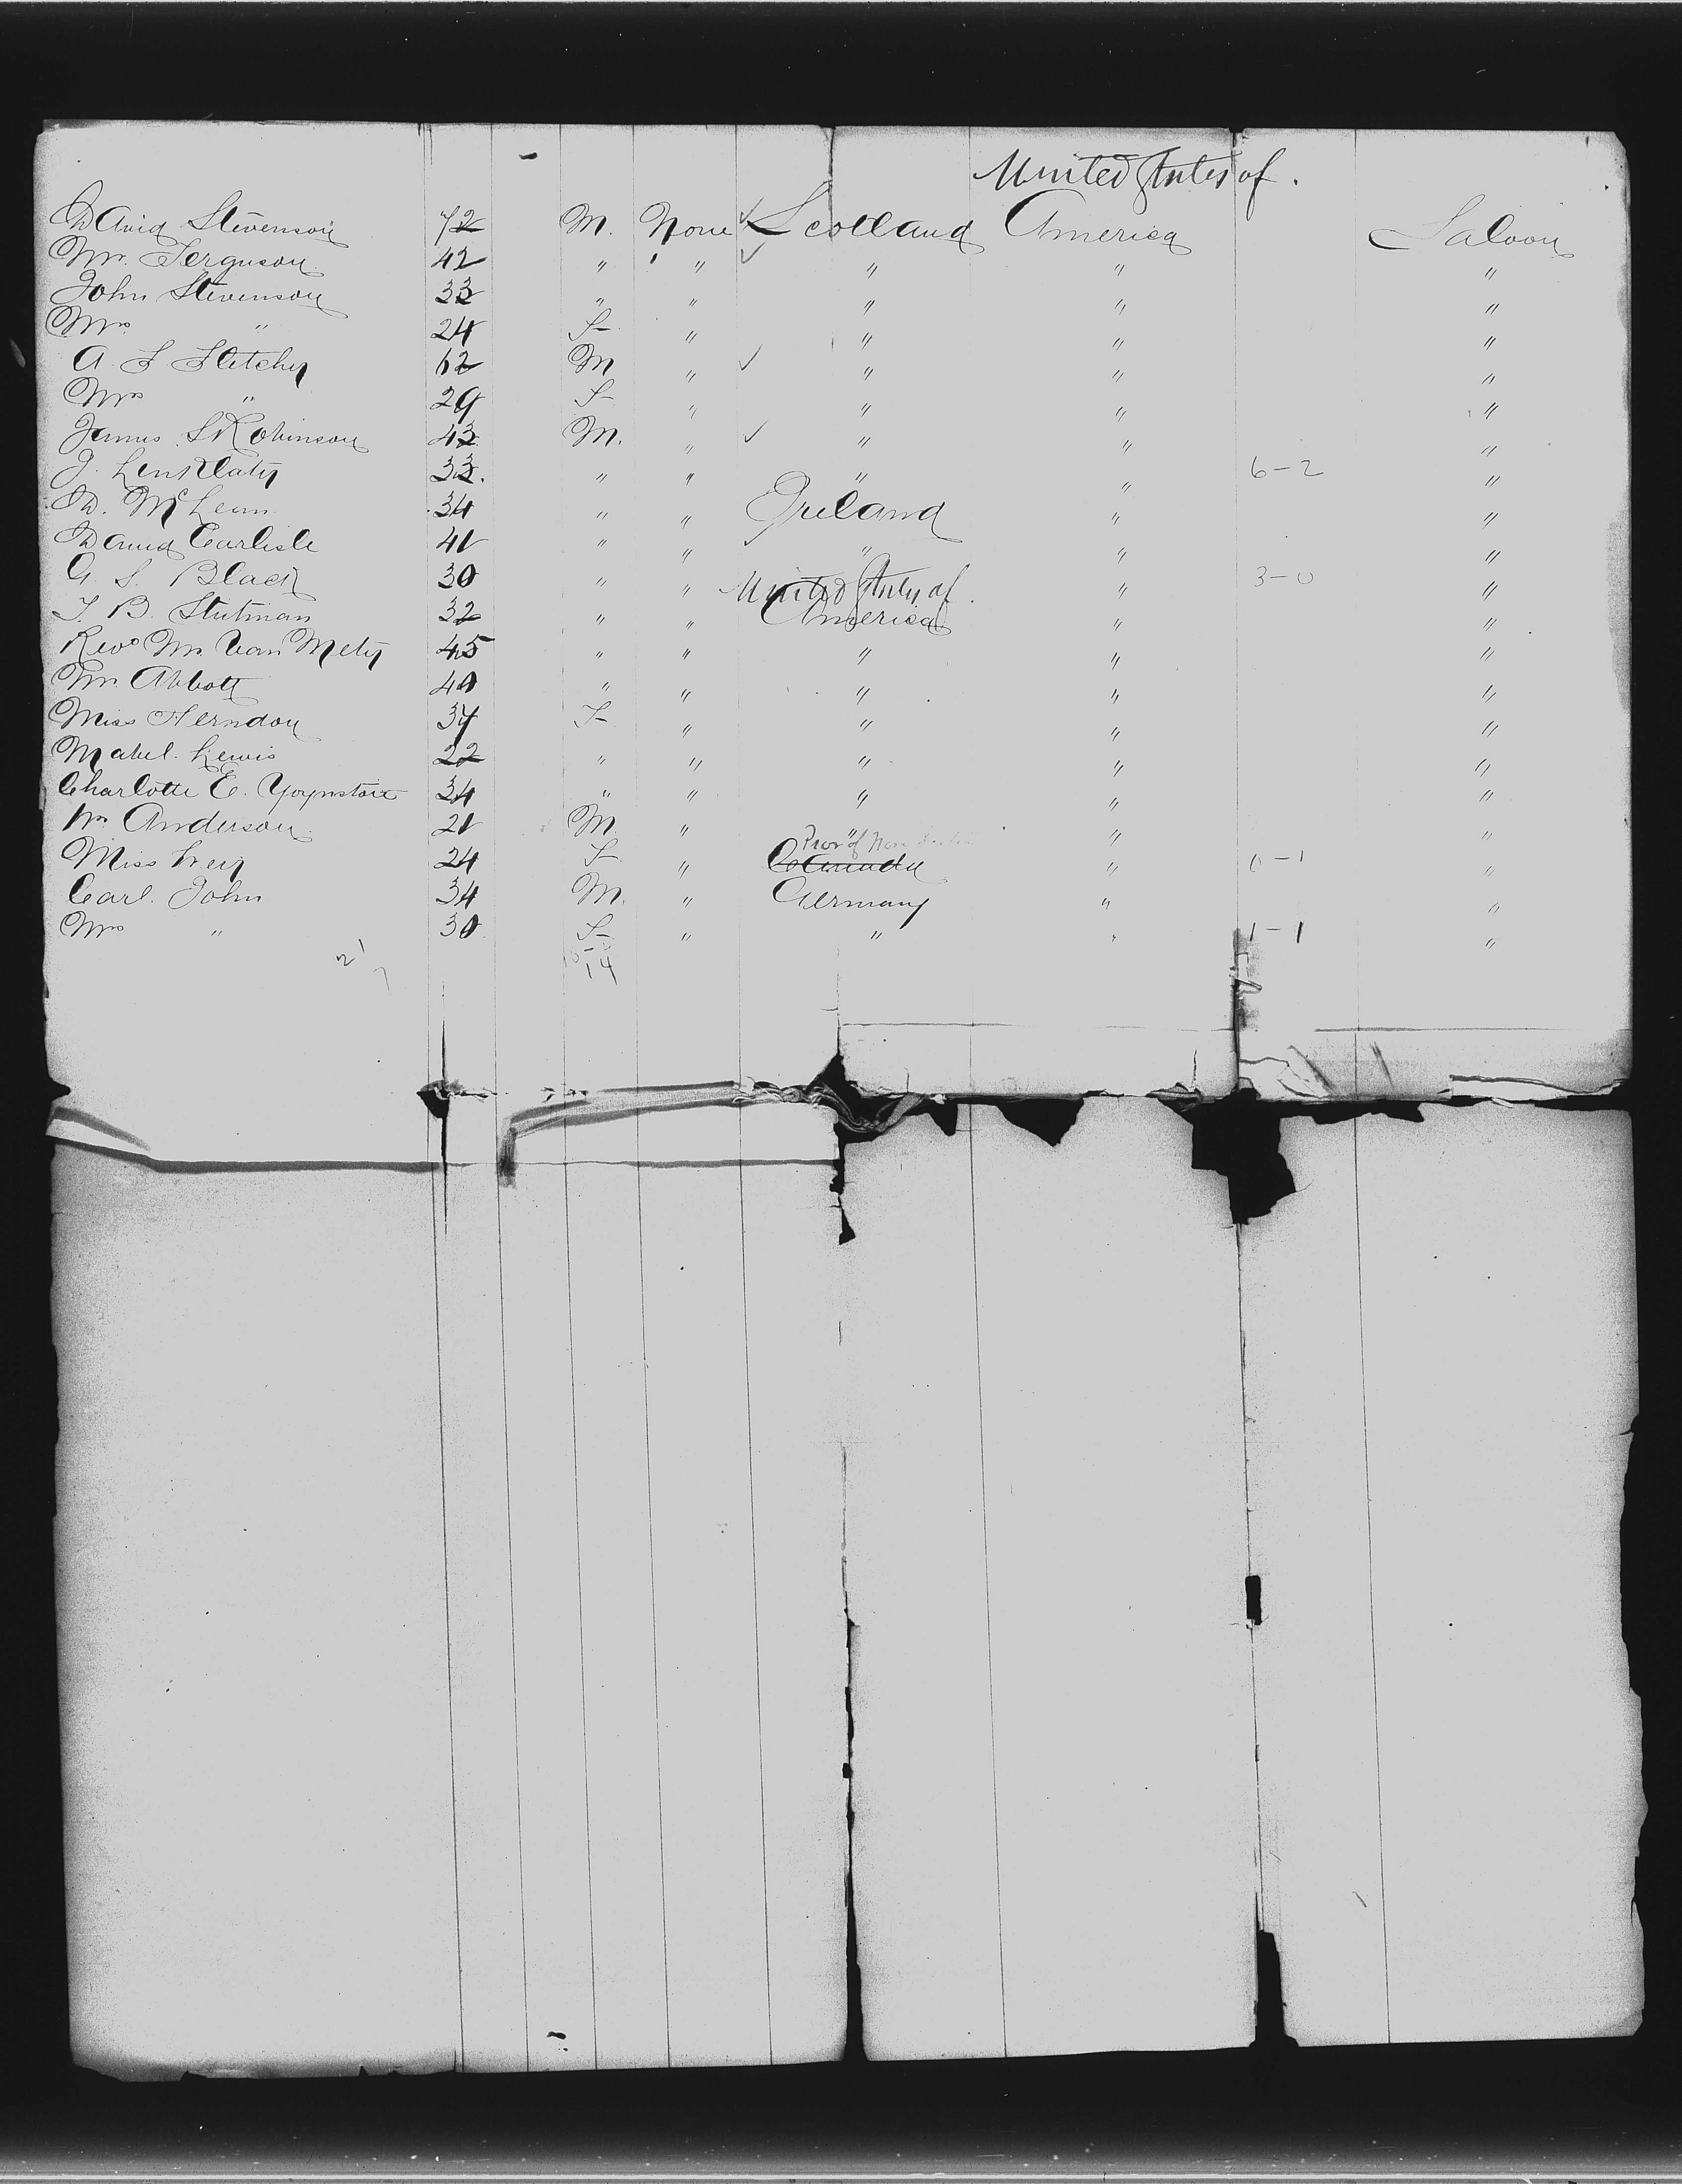 United States of.
David Stevenson 72 M. None ✓ Scotland America Saloon
Mr. Ferguson 42 " " ✓ " " "
John Stevenson 33 " " " " "
Mrs " 24 F " " " "
A. F Fletcher 62 M " ✓ " " "
Mrs " 29 F " " " "
James S Robinson 43 M. " ✓ " " "
J. Linklater 33. " " " " 6-2 "
D. McLean 34 " " Ireland " "
David Carlisle 41 " " " " "
G. S. Black 30 " " United States of " 3-0 "
F. B. Stutman 32 " " America " "
Revd Mr Van Meter 45 " " " " "
Mr. Abbott 40 " " " " "
Miss Herndon 37 F " " " "
Mabel Lewis 22 " " " " "
Charlotte E. 34 " " " " "
Wm Anderson 21 M " " " "
Prov of Nova
Miss 24 F " Canada " 0-1 "
Carl. John 34 M. " Germany " "
Mrs " 30 F " " " 1-1 "
21
7 14